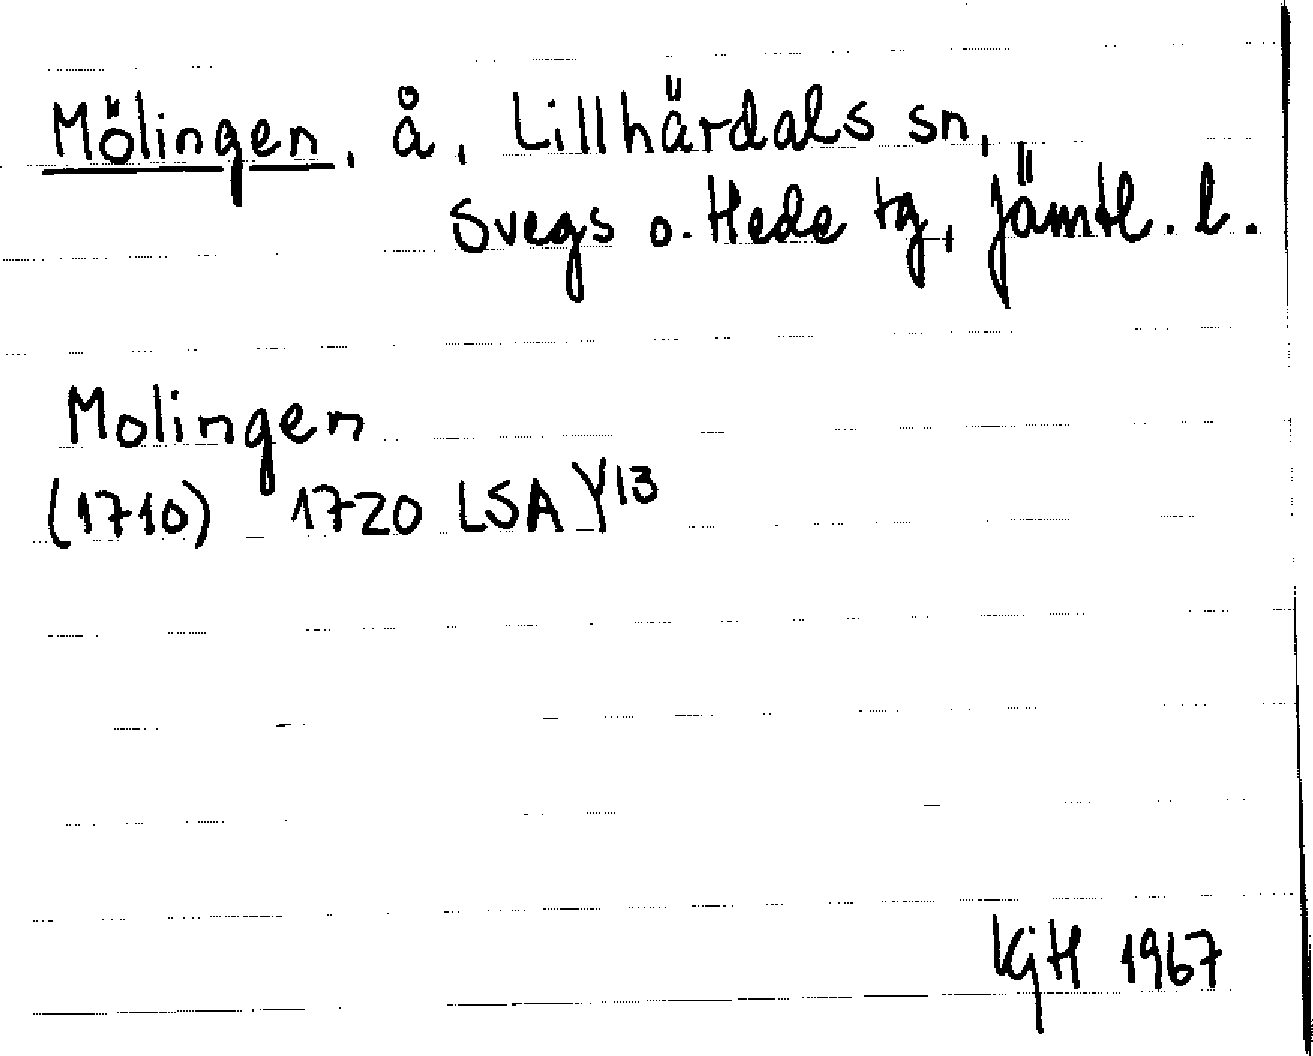 Mölingen, å, Lillhärdals sn,
Svegs o. Hede tg, Jämtl. l.
Molingen
(1710) 1720 LSA Y13
KGH 1967